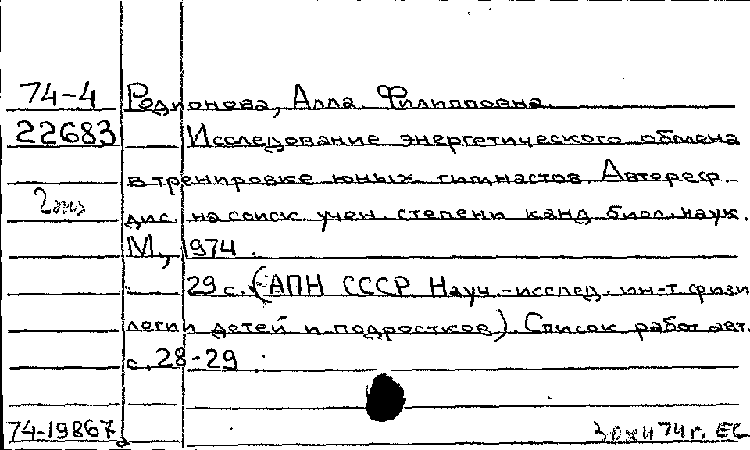 74-4 Родионова, Алла Филипповна.
22683 Исследование энергетического обмена
в тренировке юных гимнастов. Автореф.
2 экз дис. на соиск. учен. степени канд. биол. наук.
М., 1974.
29 с. (АПН СССР. Науч.-исслед. ин-т физи
логии детей и подростков). Список работ авт.
с. 28-29.
74-19867 74 г. ЕС